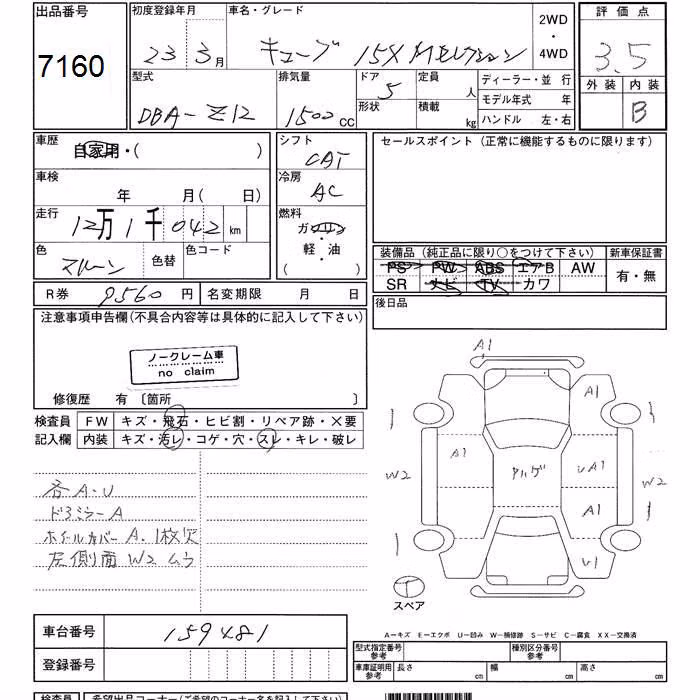 出品番号
7160
初度登録年月
23年 3月
車名・グレード
キューブ 15X Mセレクション
2WD
・
4WD
評価点
3.5
外装 内装
B
型式
DBA-Z12
排気量
1500 CC
ドア
5
形状
定員
人
積載
kg
ディーラー・並行
モデル年式 年
ハンドル 左・右
車歴
自家用・( )
車検
年 月( 日)
走行
12万1千042 km
色
マルーン
色替
色コード
シフト
CAT
冷房
AC
燃料
ガソリン
・
軽・油
( )
セールスポイント (正常に機能するものに限ります)
装備品 (純正品に限り○をつけて下さい)
PS PW ABS エアB AW
SR ナビ TV カワ
新車保証書
有・無
R券 9560円
名変期限 月 日
後日品
注意事項申告欄(不具合内容等は具体的に記入して下さい)
ノークレーム車
no claim
修復歴 有 〔箇所 〕
検査員
記入欄
FW キズ・飛石・ヒビ割・リペア跡・X要
内装 キズ・汚レ・コゲ・穴・スレ・キレ・破レ
各A・U
ドアミラーA
ホイールカバーA.1枚欠
左側面W2ムラ
A1
A1
A1
ハゲ
UA1
A1
U1
W2
W2
スペア
A-キズ E-エクボ U-凹み W-補修跡 S-サビ C-腐食 XX-交換済
車台番号
159481
登録番号
型式指定番号
参考
種別区分番号
参考
車庫証明用
参考
長さ cm
幅 cm
高さ cm
検査員
希望出品コーナー(ご希望のコーナー名を記入して下さい)